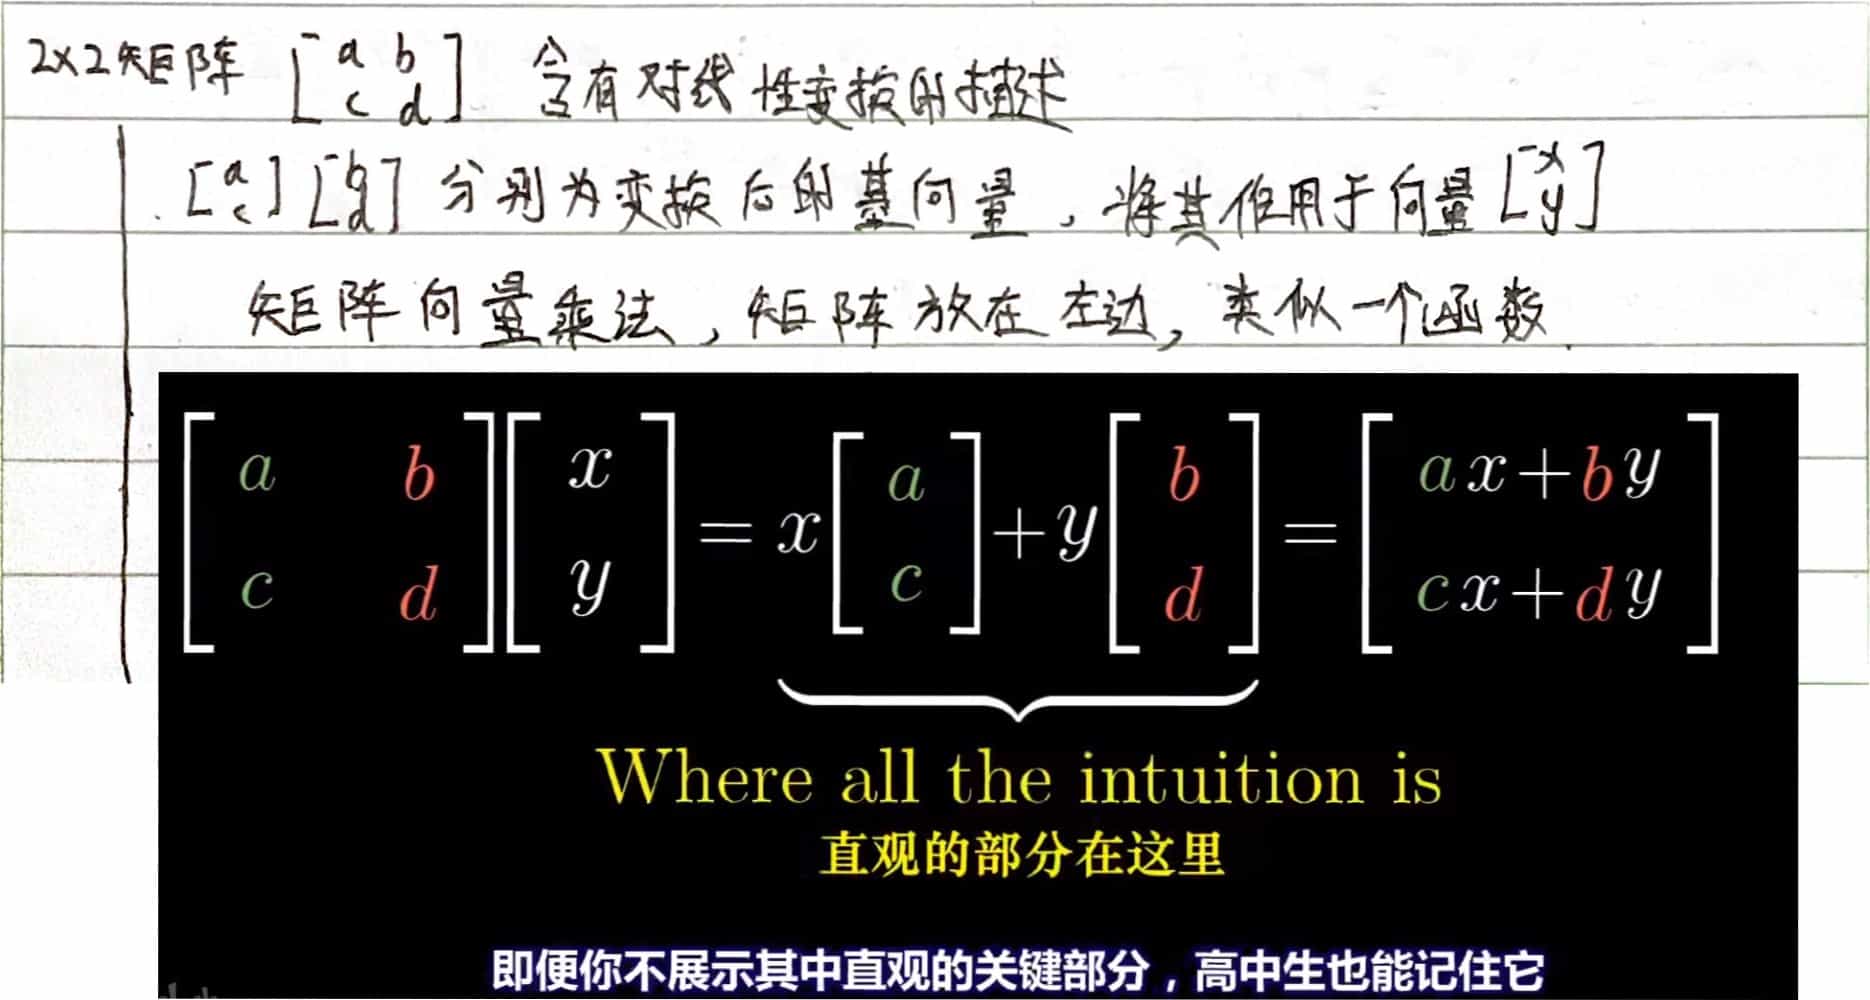 2×2矩阵 [a b; c d] 含有对线性变换的描述
[a; c] [b; d] 分别为变换后的基向量，将其作用于向量 [x; y]
矩阵向量乘法，矩阵放在左边，类似一个函数.
[a b; c d][x; y] = x[a; c] + y[b; d] = [ax+by; cx+dy]
Where all the intuition is
直观的部分在这里
即便你不展示其中直观的关键部分，高中生也能记住它